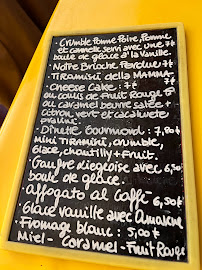 - Crumble Pomme Poire, Pomme
et cannelle servi avec une
boule de glace à la Vanille. 7€
- Notre Brioche Perdue 7€
- Tiramisu della MAMMA 7€
- Cheese Cake: 7€
ou coulis de Fruit Rouge
ou caramel beurre salée +
citron vert et cacahuete
praliné.
- Dinette Gourmand: 7,50€
mini Tiramisu, crumble,
Glace, chantilly + fruit.
- Gaufre Liegeoise avec 6,50
boule de glace.
- Affogato al Caffé 6,50€
- Glace vanille avec Amarene
- Fromage blanc: 5,00€
Miel - Caramel - Fruit Rouge